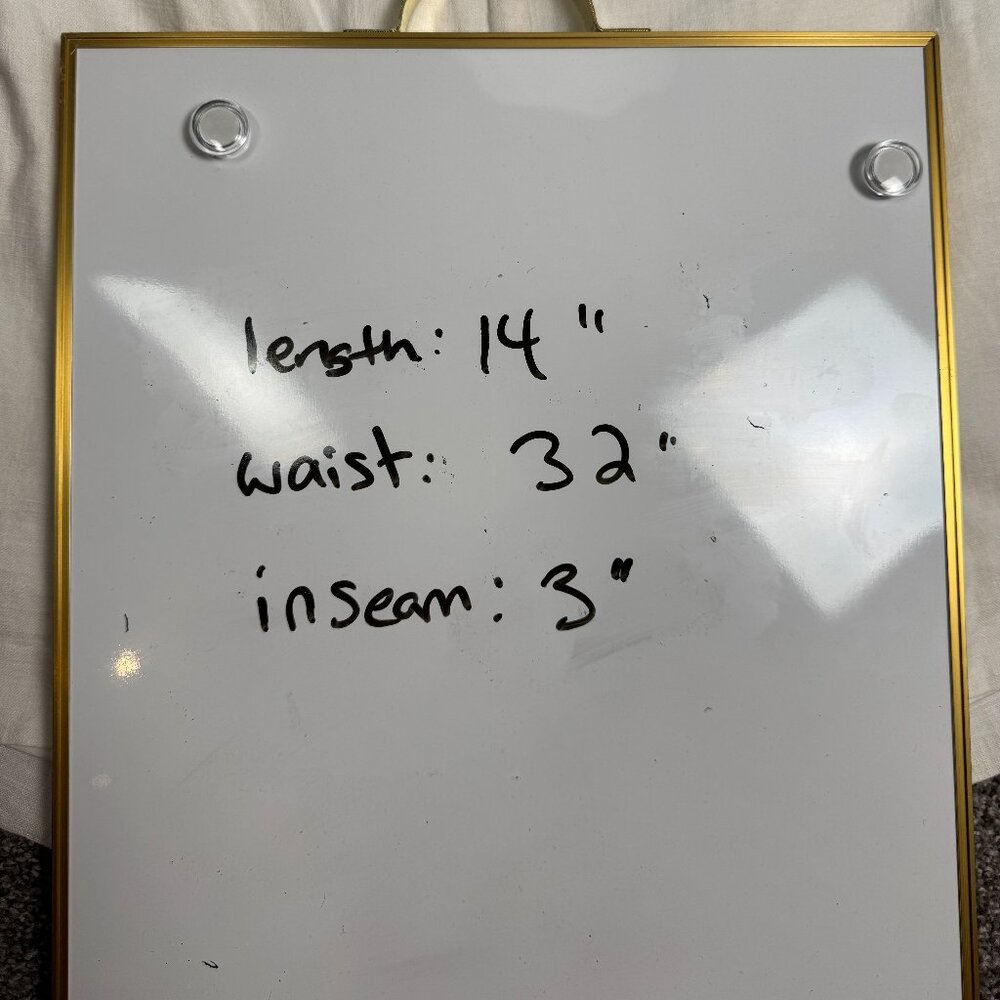 length: 14"
waist: 32"
inseam: 3"